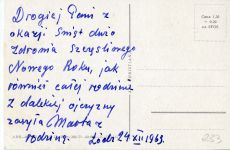 Drogiej Pani z
okazji Świąt dużo
Zdrowia Szczęśliwego
Nowego Roku, jak
również całej rodzinie
Z dalekiej ojczyzny
zasyła Marta z
rodziną. Łódź 24 XII 1963.
Cena 1,20
253